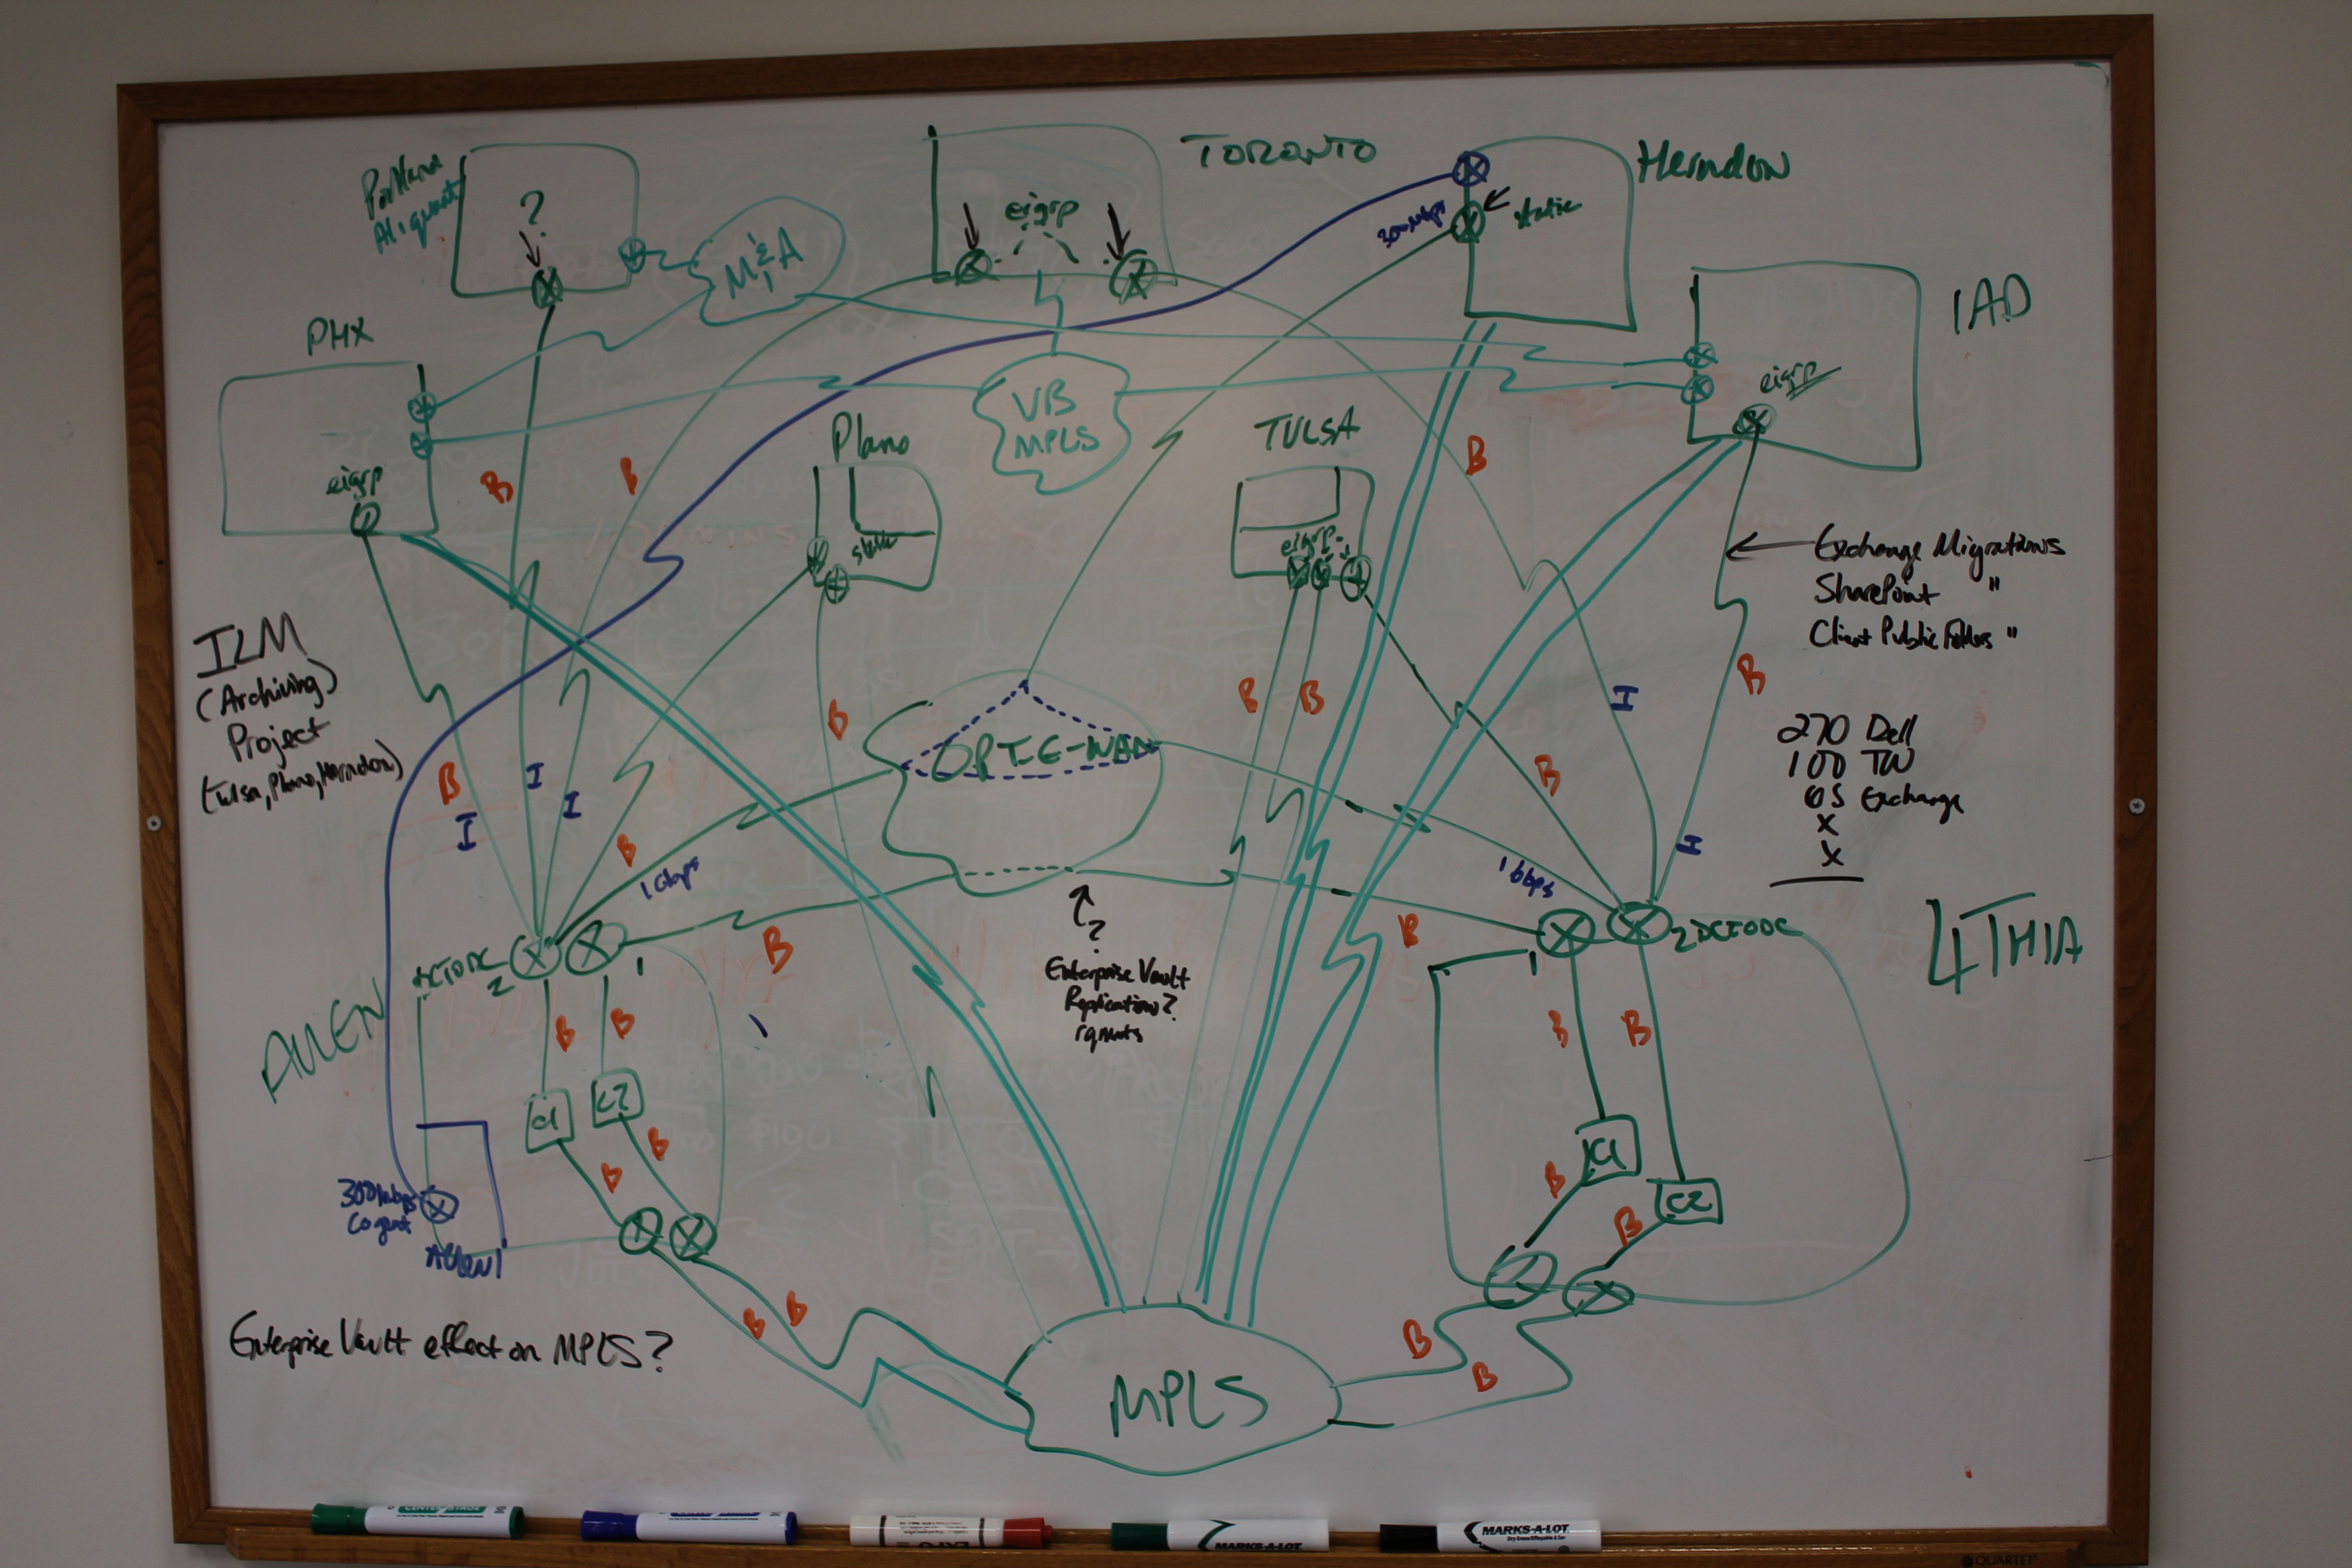 TORONTO
Herndon
Portland
?
eigrp
static
300Mbps
M&A
IAD
PHX
eigrp
VB
MPLS
Plano
TULSA
eigrp
B
B
B
static
eigrp
Exchange Migrations
SharePoint "
Client Public Folders "
ILM
(Archiving)
Project
(Tulsa, Plano, Herndon)
B
B
B
B
I
OPT-E-WAN
270 Dell
100 TW
OS Exchange
X
X
B
I
I
I
B
B
I
1Gbps
1Gbps
2
1
B
B
1
2
4THIA
?
Enterprise Vault
Replication?
rqmnts
ALLEN
B
B
B
B
C1
C2
C1
C2
B
B
B
B
300Mbps
Cogent
ALLEN1
Enterprise Vault effect on MPLS?
B
B
MPLS
B
B
MARKS-A-LOT
MARKS-A-LOT
QUARTET